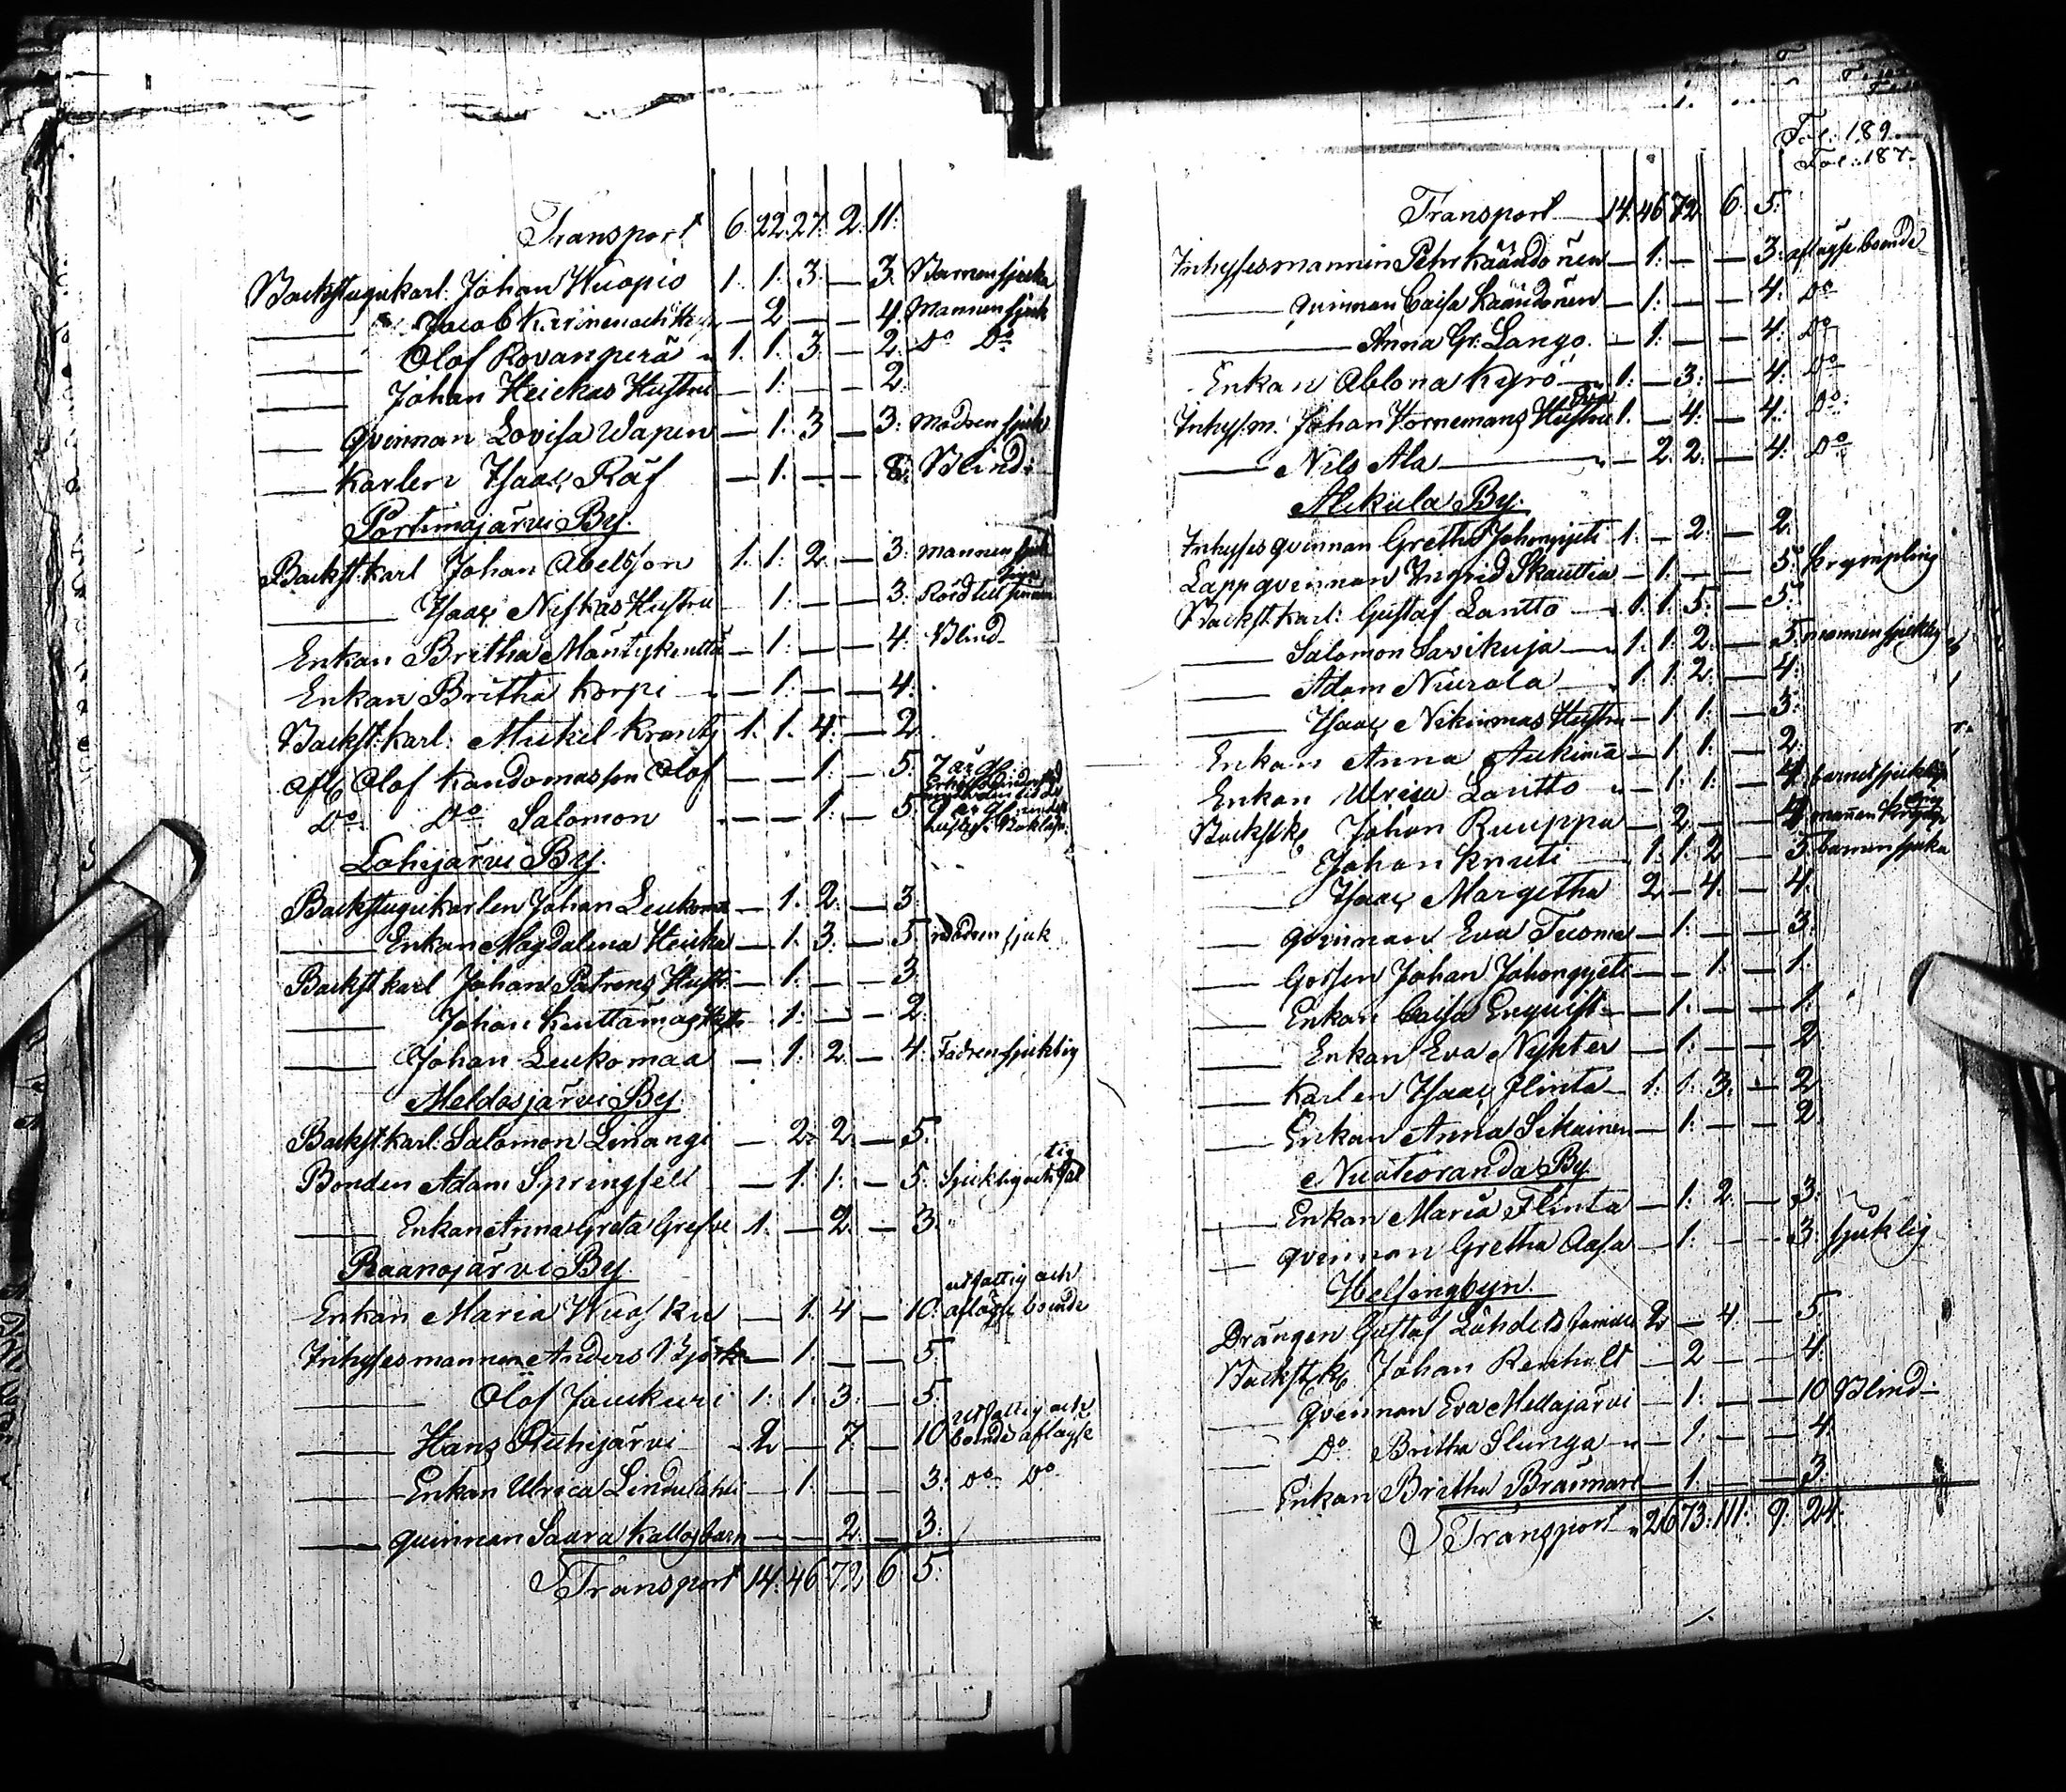 Transport 6. 22. 27. 2. 11:
Backstugukarl. Johan Kuopio 1. 1. 3. — 3. Barnen sjuka
— Jacob — 2. — — 4. Mannen sjuk
— Olof Rovanperä 1. 1. 3. — 2. Do Do
— Johan Heickas Hustru — 1. — — 2.
— qvinnan Lovisa Wapen — 1. 3 — 3. Modren sjuk
— Karlen Isaac Räf — 1. — — 8. Blind
Portimojärvi By.
Backst. karl Johan Abelsson 1. 1. 2. — 3. mannen sjuk
— Isaac Niskas Hustru — 1. — — 3.
Enkan Britha Mäntykenttä — 1. — — 4. Blind
Enkan Britha Korpi — 1. — — 4.
Backst. karl. Mickel Krantz 1. 1. 4. — 2.
Olof Kandomasson Olof — — 1. — 5.
Do Do Salomon — — 1. — 5.
Lohijärvi By.
Backstugukarlen Johan Leukoma — 1. 2. — 3.
— Enkan Magdalena Heicka — 1. 3. — 5. modren sjuk
Backst karl Johan Patrons Hustr. — 1. — — 3.
— Johan Kenttämaas — 1. — — 2.
— Johan Leukomaa — 1. 2. — 4. Fadren sjuklig
Meldosjärvi By
Backst. karl. Salomon Linangi — 2. 2. — 5.
Bonden Adam Springfell — 1. 1. — 5. Sjuklig och fattig
— Enkan Anna Greta Grefve 1. — 2. — 3.
Raanojärvi By.
Enkan Maria — 1. 4 — 10. utfattig och aflägse boende
Inhysesmannen Anders Björk — 1. — — 5.
— Olof Jauckuri 1. 1. 3. — 5.
— Hans Ruhijärvi 2 — 7. — 10. utfattig och boende aflägse
— Enkan Ulrica Lindulahti — 1. — — 3. Do Do
— quinnan Saara Kallos barn — — 2. — 3.
Transport 14. 46. 72. 6. 5.
Fol: 189
Fol: 187
Transport 14. 46. 72. 6. 5.
Inhysesmannen Pehr Käändönen — 1. — — 3. aflägse boende
— quinnan Caisa Käändönen — 1. — — 4. Do
— Anna Gr. Lango — 1. — — 4. Do
Enkan Ablona Kyrö 1. — 3. — 4. Do
Inhys. m. Johan Hornemans Hustru 1. — 4. — 4. Do
— Nils Ala — 2. 2. — 4. Do
Alkula By.
Inhyses qvinnan Greth. Johonpjeti 1. — 2. — 2.
Lappqvinnan Ingrid Skauttia — 1. — — 5. Krympling
Backst. karl. Gustaf Lantto 1. 1. 5. — 5.
— Salomon Savikuja 1. 1. 2. — 5. mannen sjuklig
— Adam Niurala 1. 1. 2. — 4.
— Isaac Nikinmas Hustru — 1. 1. — 3.
Enkan Anna — 1. 1. — 2.
Enkan Ulrica Lantto — 1. 1. — 4. barnet sjuklig
Backst. k. Johan Ruuppa — 2. — — 4. mannen
— Johan Knuti 1. 1. 2. — 3. barnen sjuka
— Isaac Margetha 2 — 4. — 4.
— qvinnan Eva Tuoma — 1. — — 3.
— Gossen Johan Johonpjeti — — 1. — 1.
— Enkan Caisa Enquist — 1. — — 1.
— Enkan Eva Nykter — 1. — — 2
— Karlen Isaac Flinta 1. 1. 3. — 2
— Enkan Anna Sikainen — 1. — — 2
Nuotioranda By
— Enkan Maria Flinta — 1. 2. — 3.
— qvinnan Gretha Aasa — 1. — — 3. sjuklig
Helsingbyn.
Drängen Gustaf Lahdes familie 2 — 4. — 5.
Backst. k. Johan Renholt — 2 — — 4.
— qvinnan Eva Mellajärvi — 1. — — 10 Blind
— Do Britha Slunga — 1. — — 4.
— Enkan Britha Braunare — 1. — — 3.
Transport 26 73. 111. 9. 24.